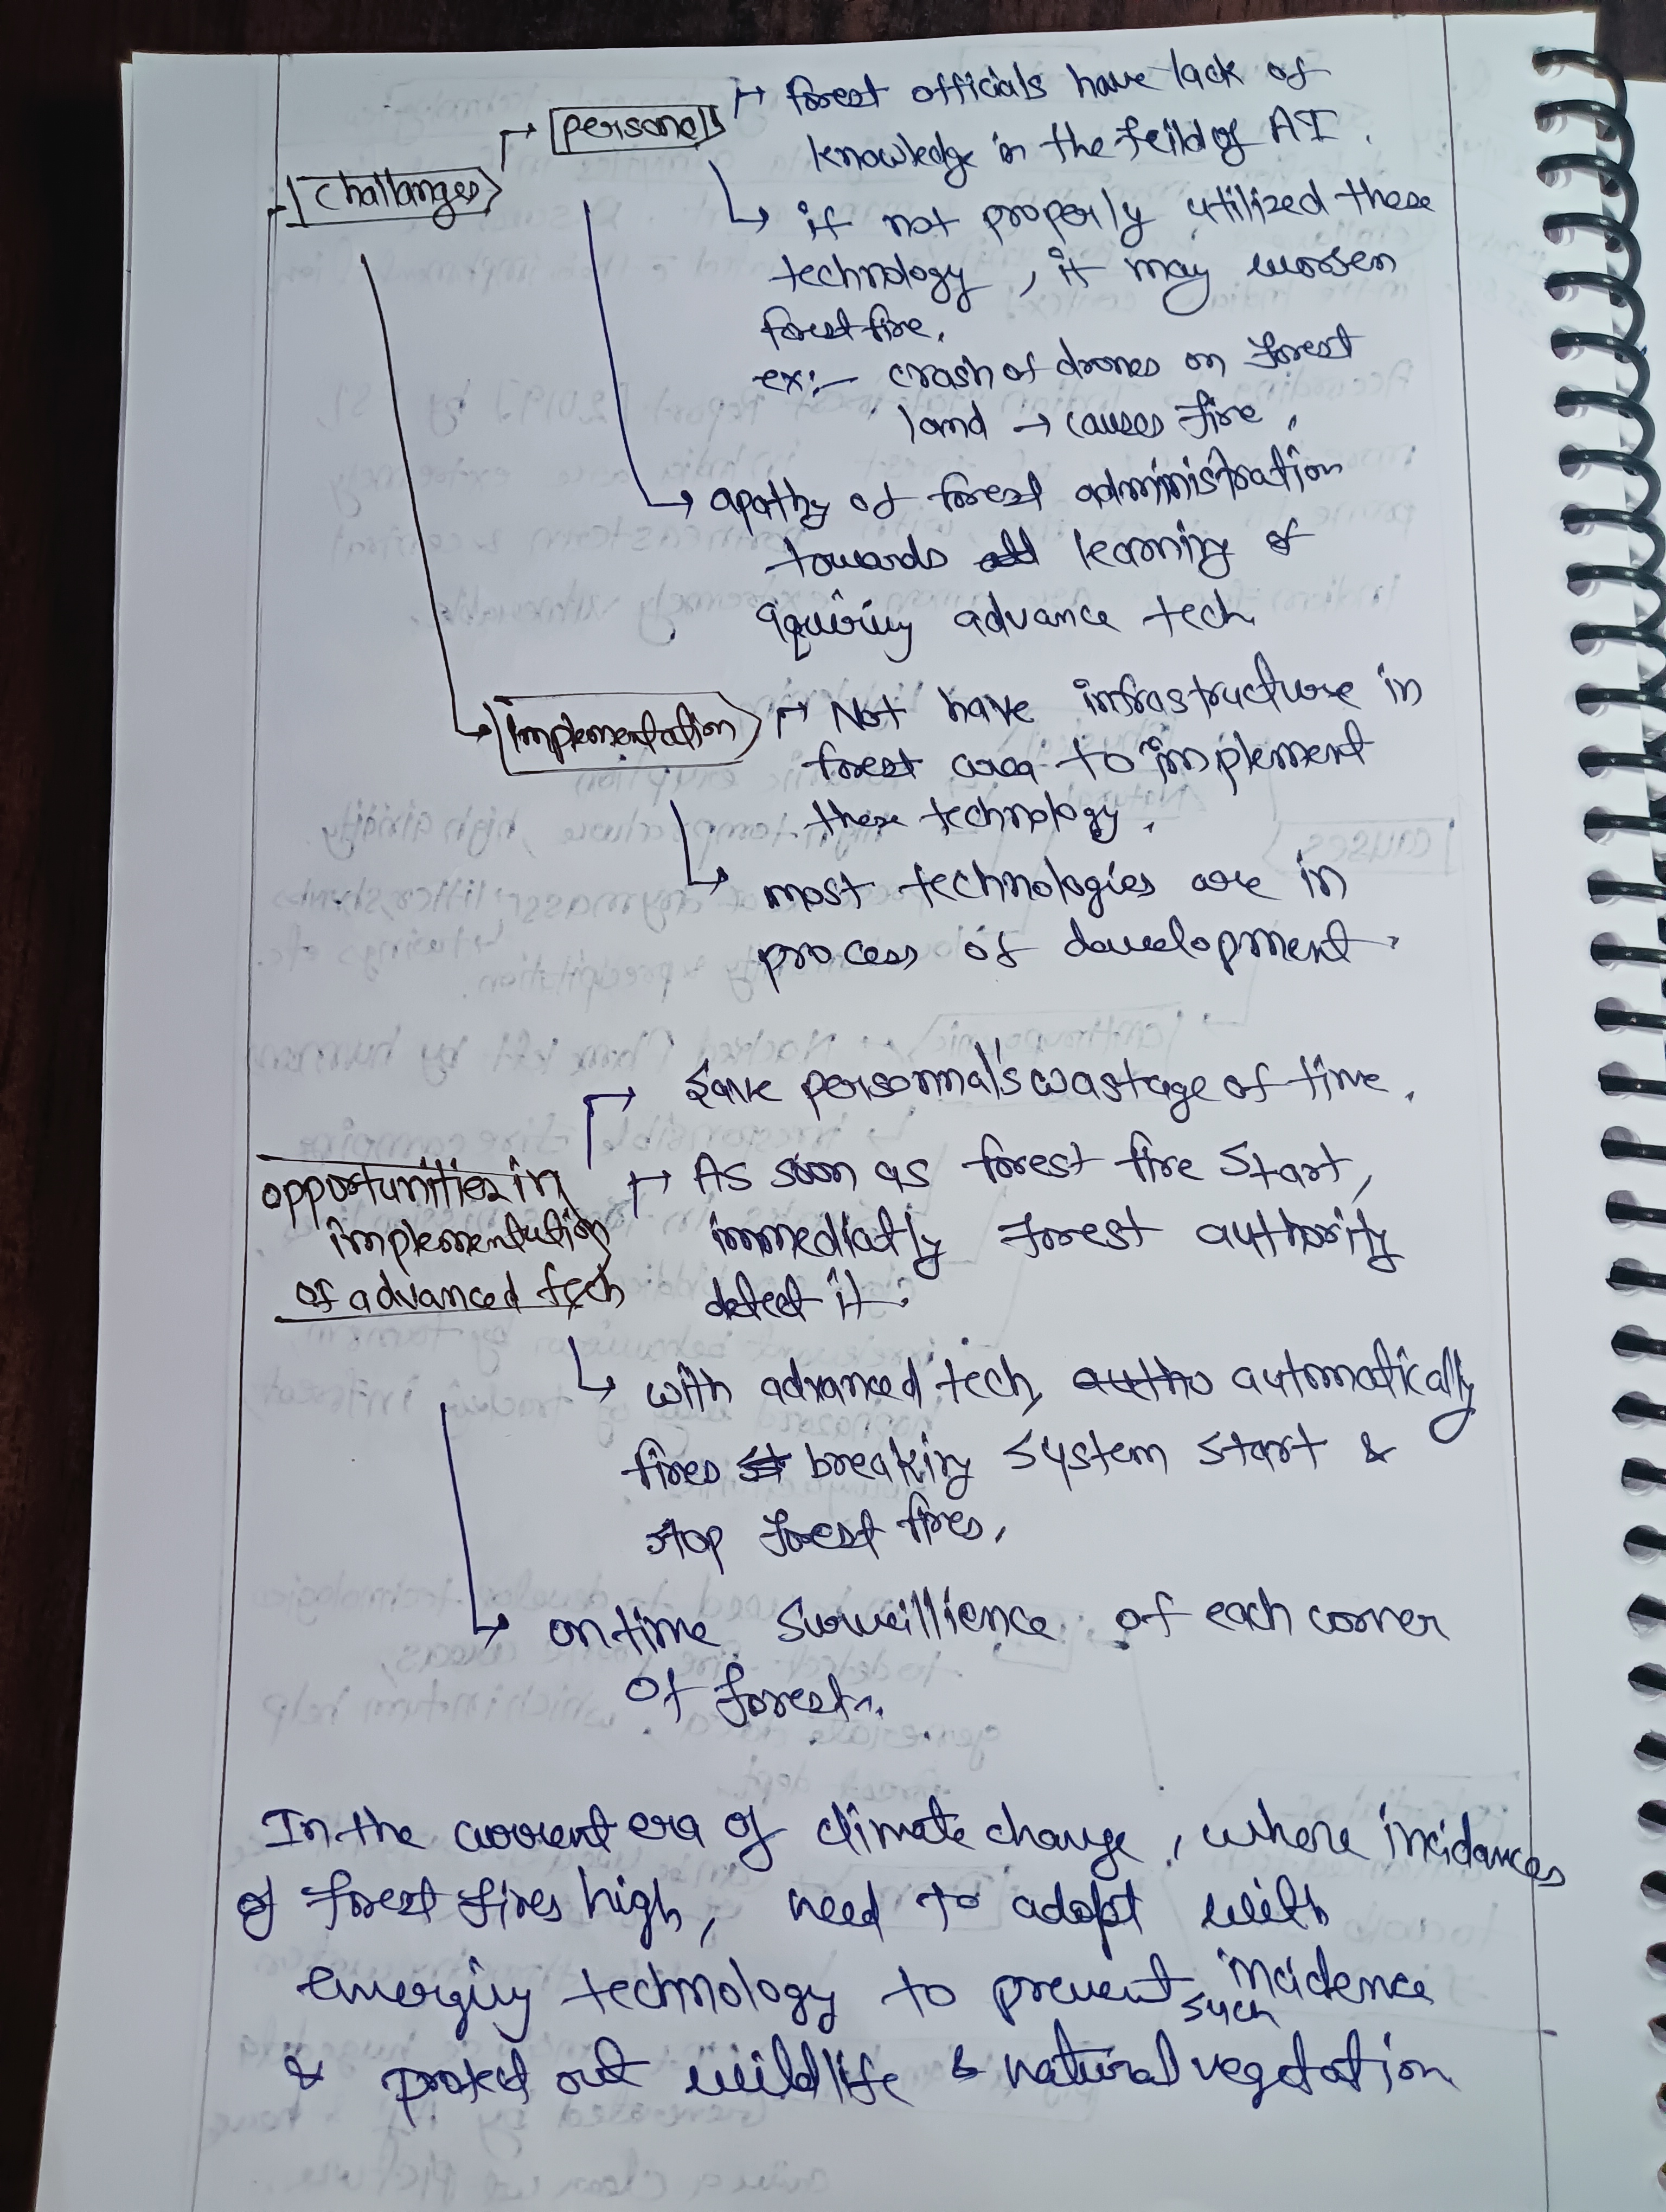 → forest officials have lack of
→ [personals]
knowledge in the feild of AI.
[challanges>
↳ if not properly utilized these
technology, it may worsen
forest fire.
ex:- crash of drones on forest
land → causes fire.
↳ apathy of forest administration
towards learning of
aquiring advance tech
↳ [implementation> → Not have infrastructure in
forest area to implement
these technology.
↳ most technologies are in
process of development.
→ save personnal's wastage of time.
opportunities in
implementation
of advanced tech
→ As soon as forest fire start,
immediatly forest authority
detect it.
↳ with advanced tech, autho automatically
fires st breaking system start &
stop forest fires,
↳ on time surveillience of each corner
of forest.
In the current era of climate change, where incidances
of forest fires high, need to adopt with
emerging technology to prevent such incidence
& protect out wildlife & natural vegetation